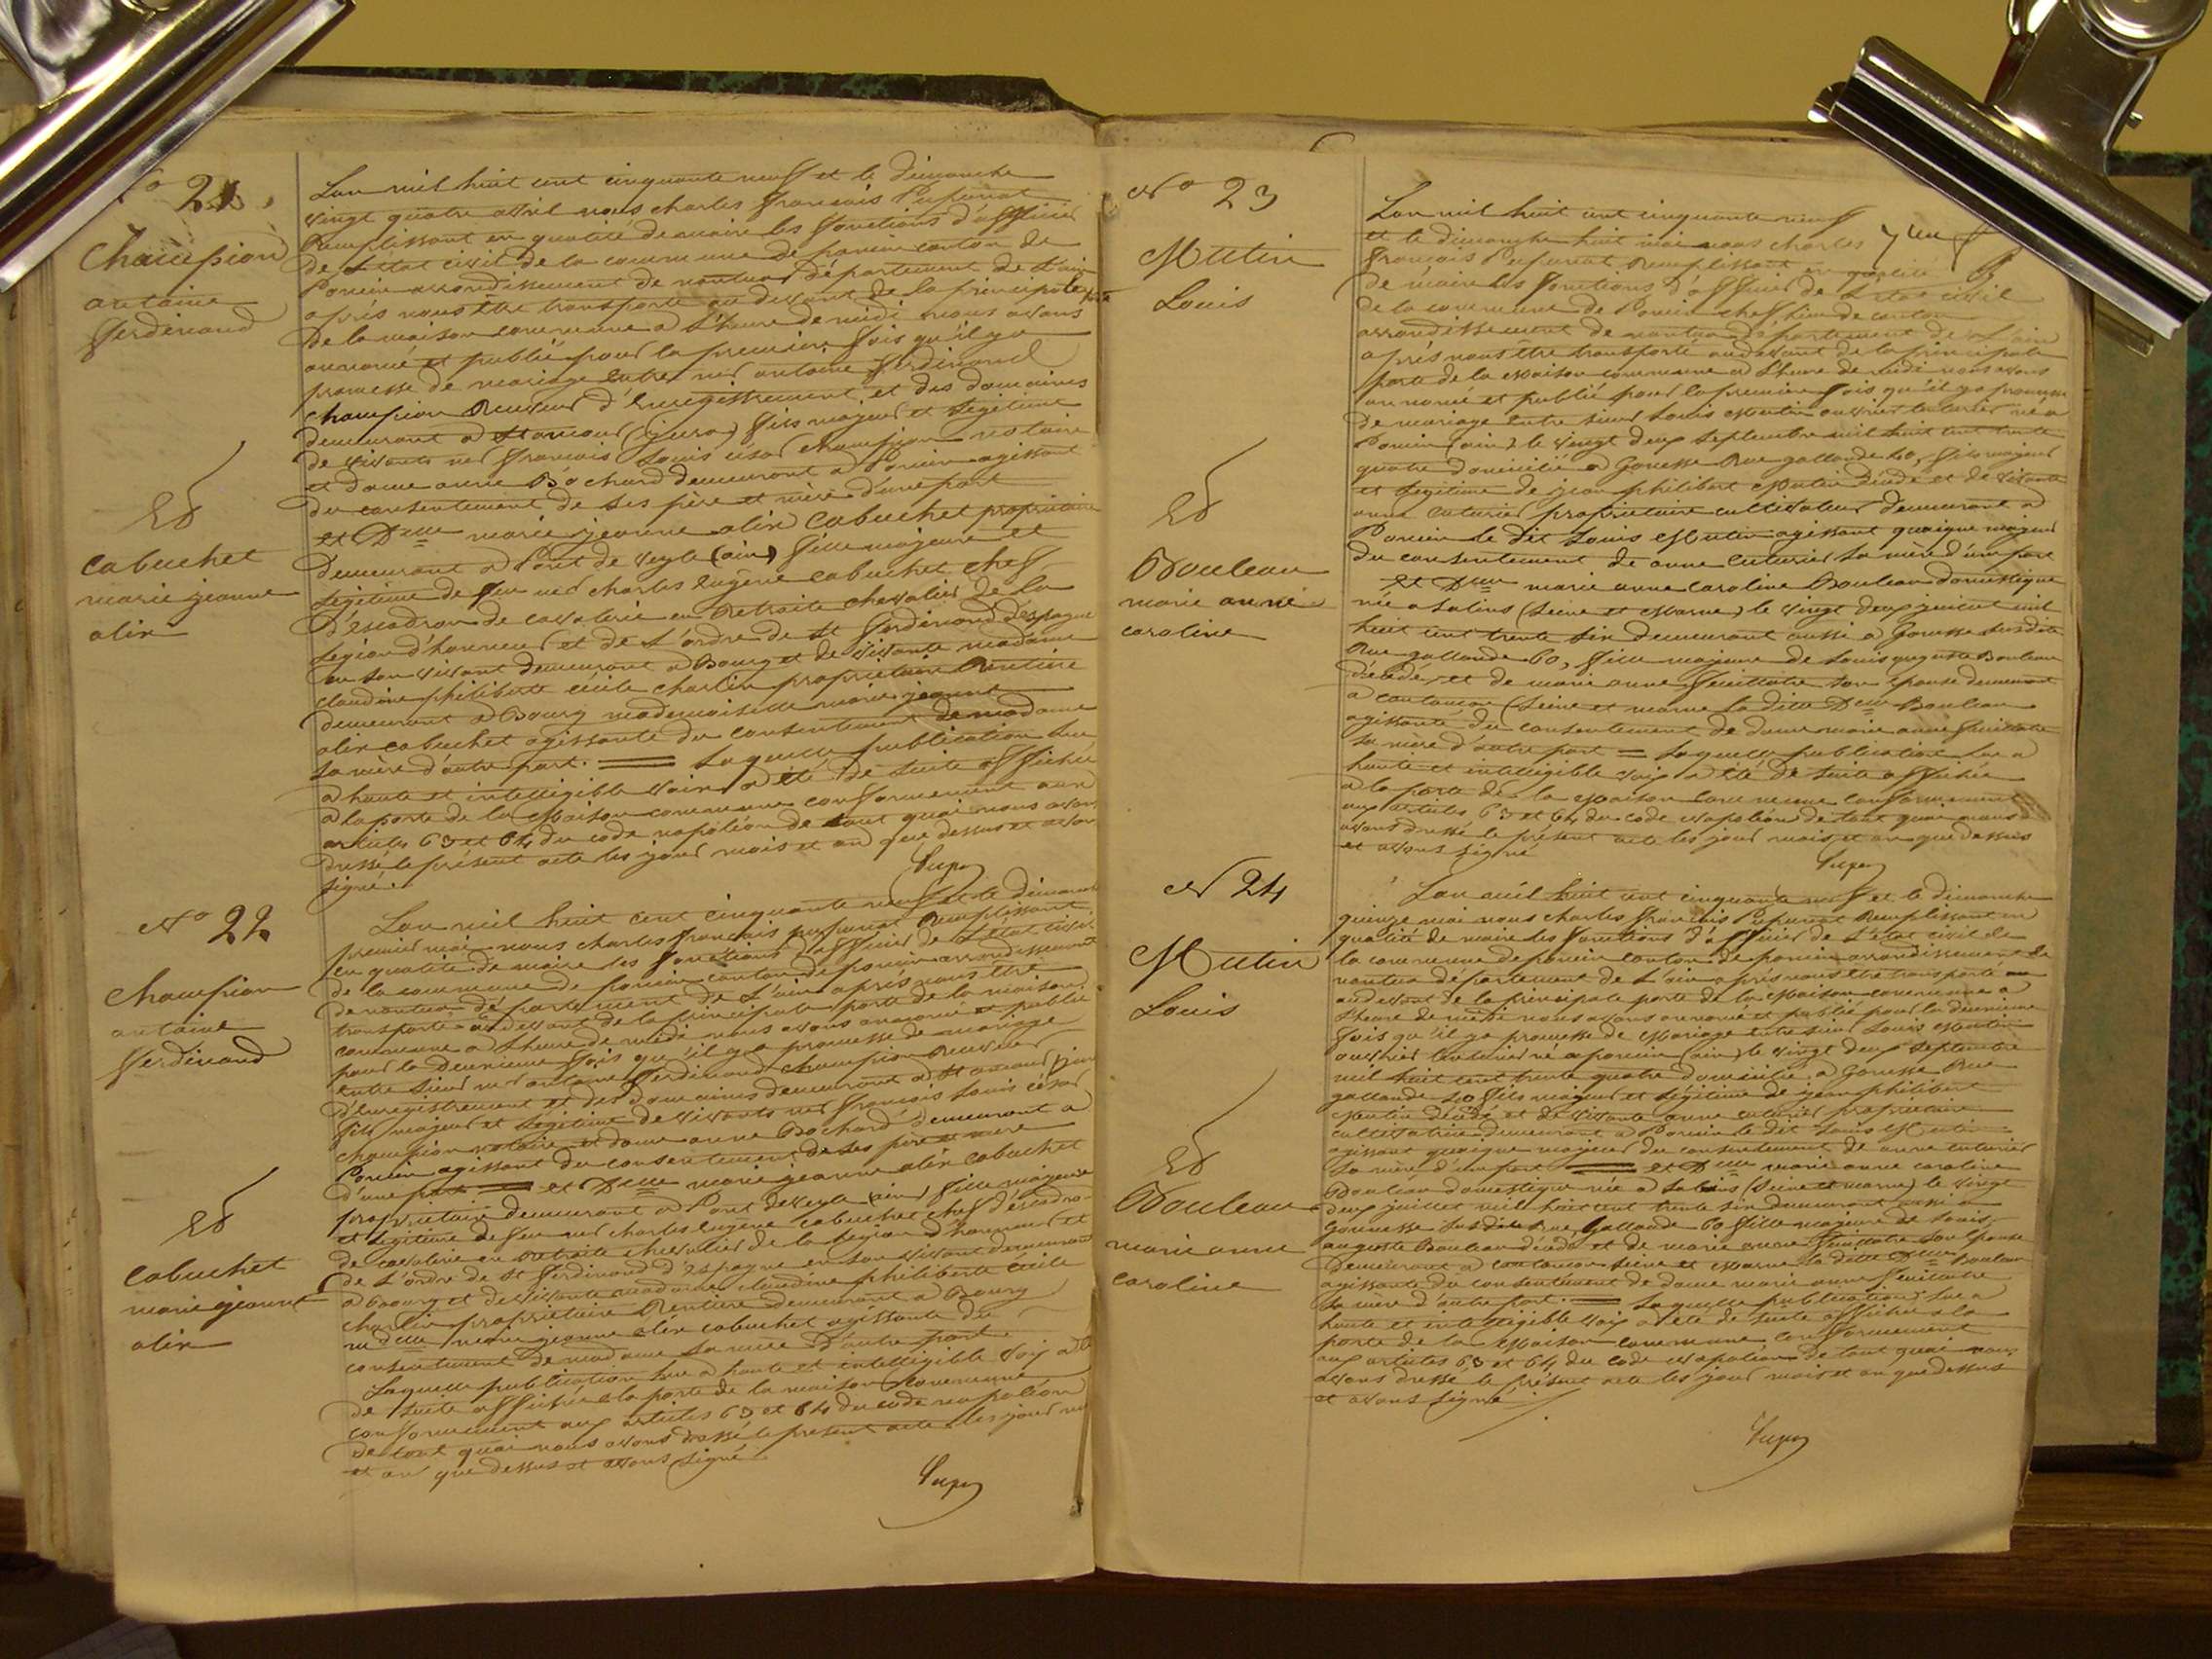 No 21.
Champion
antoine
ferdinand
Et
Cabuchet
marie jeanne
alix
Lan mil huit cent cinquante neuf et le dimanche
vingt quatre avril nous charles françois Pupunat
Remplissant en qualité de maire les fonctions d'officier
de L'état civil de la commune de poncin canton de
Poncin arrondissement de nantua département de L'ain
après nous être transporté au devant de la principale porte
de la maison commune a L'heure de midi nous avons
annoncé et publié pour la première fois qu'il y a
promesse de mariage Entre mr antoine ferdinand
champion Receveur d'Enregistrement et des domaines
demeurant a St amour (jura) fils majeur et Légitime
de vivants mr françois Louis césar champion notaire
et dame anne Bochard demeurant a Poncin agissant
du consentement de ses père et mère d'une part
et Delle marie jeanne alix Cabuchet propriétaire
demeurant a Pont de veyle (ain) fille majeure et
Légitime de feu mr charles Eugène cabuchet chef
d'escadron de cavalerie en Retraite chevalier de la
Légion d'honneur et de L'ordre de St ferdinand d'espagne
en son vivant demeurant a Bourg et de vivante madame
claudine philiberte cécile charlin propriétaire Rentière
demeurant a Bourg mademoiselle marie jeanne
alix cabuchet agissante du consentement de madame
sa mère d'autre part. Laquelle publication lue
a haute et intelligible voix a été de suite affichée
a la porte de la Maison commune conformement aux
articles 63 et 64 du code napoléon de tout quoi nous avons
dressé le présent acte les jour mois et an que dessus et avons
signé.
No 22
Champion
antoine
ferdinand
Et
Cabuchet
marie jeanne
alix
Lan mil huit cent cinquante neuf et le dimanche
premier mai nous charles françois pupunat Remplissant
en qualité de maire les fonctions d'officier de L'état civil
de la commune de poncin canton de poncin arrondissement
de nantua département de L'ain après nous être
transporté au devant de la principale porte de la maison
commune a L'heure de midi nous avons annoncé et publié
pour la deuxième fois qu'il y a promesse de mariage
entre Sieur mr antoine ferdinand champion Receveur
d'Enregistrement et des domaines demeurant a St amour jura
fils majeur et Légitime de vivants mr françois Louis césar
champion notaire et dame anne Bochard demeurant a
Poncin agissant du consentement de ses père et mère
d'une part et Delle marie jeanne alix cabuchet
propriétaire demeurant a Pont de veyle (ain) fille majeure
et Légitime de feu mr charles Eugène cabuchet chef d'escadron
de cavalerie en Retraite chevalier de la Légion d'honneur et
de L'ordre de St ferdinand d'Espagne en son vivant demeurant
a bourg et de vivante madame claudine philiberte cécile
charlin propriétaire Rentière demeurant a Bourg
mdelle marie jeanne alix cabuchet agissante du
consentement de madame sa mère d'autre part.
Laquelle publication lue a haute et intelligible voix a été
de suite affichée a la porte de la maison commune
conformement aux articles 63 et 64 du code napoléon
de tout quoi nous avons dressé le present acte les jour
et an que dessus et avons signé.
No 23
Mutin
Louis
Et
Bouleau
marie anne
caroline
Lan mil huit cent cinquante neuf
et le dimanche huit mai nous charles
françois Pupunat Remplissant en qualité
de maire les fonctions d'officier de L'état civil
de la commune de Poncin chef lieu de canton
arrondissement de nantua département de L'ain
après nous être transporté au devant de la principale
porte de la Maison commune a L'heure de midi nous avons
annoncé et publié pour la première fois qu'il y a promesse
de mariage entre sieur Louis Mutin ouvrier né a
Poncin (ain) le vingt deux septembre mil huit cent trente
quatre domicilié a Gonesse Rue gallande 60, fils majeur
et Legitime de jean philibert Mutin décédé et de vivante
anne cuturier propriétaire cultivateur demeurant a
Poncin Le dit Louis Mutin agissant quoique majeur
du consentement de anne cuturier sa mère d'une part
Et Delle marie anne caroline Bouleau domestique
née a Salins (Seine et Marne) le vingt deux juillet mil
huit cent trente six demeurant aussi a Gonesse susdite
Rue gallande 60, fille majeure de Louis auguste Bouleau
décédé, et de marie anne son épouse demeurant
a (Seine et marne La dite Delle Bouleau
agissante du consentement de dame marie anne
sa mère d'autre part = Laquelle publication lue a
haute et intelligible voix a été de suite affichée
a la porte de la Maison commune conformement
aux articles 63 et 64 du code Napoléon de tout quoi nous
avons dressé le présent acte les jour mois et an que dessus
et avons signé
N 24
Mutin
Louis
Et
Bouleau
marie anne
caroline
Lan mil huit cent cinquante neuf et le dimanche
quinze mai nous charles françois Pupunat Remplissant en
qualité de maire les fonctions d'officier de L'état civil de
la commune de poncin canton de poncin arrondissement de
nantua département de L'ain après nous être transporté au
au devant de la principale porte de la Maison commune a
L'heure de midi nous avons annoncé et publié pour la deuxième
fois qu'il y a promesse de Mariage entre sieur Louis Mutin
ouvrier né a poncin (ain) le vingt deux septembre
mil huit cent trente quatre domicilié a Gonesse Rue
gallande 60 fils majeur et Légitime de jean philibert
Mutin décédé et de vivante anne cuturier propriétaire
cultivatrice demeurant a Poncin le dit Louis Mutin
agissant quoique majeur du consentement de anne cuturier
sa mère d'une part et Delle marie anne caroline
Bouleau domestique née a Salins (Seine et marne) le vingt
deux juillet mil huit cent trente six demeurant aussi a
Gonnesse susdite Rue Gallande 60 fille majeure de Louis
auguste Bouleau décédé et de marie anne son Epouse
demeurant a seine et Marne La dite Delle Bouleau
agissante du consentement de dame marie anne
sa mère d'autre part. Laquelle publication lue a
haute et intelligible voix a été de suite affichée a la
porte de la Maison commune conformement
aux articles 63 et 64 du code Napoléon de tout quoi nous
avons dressé le présent acte les jour mois et an que dessus
et avons signé